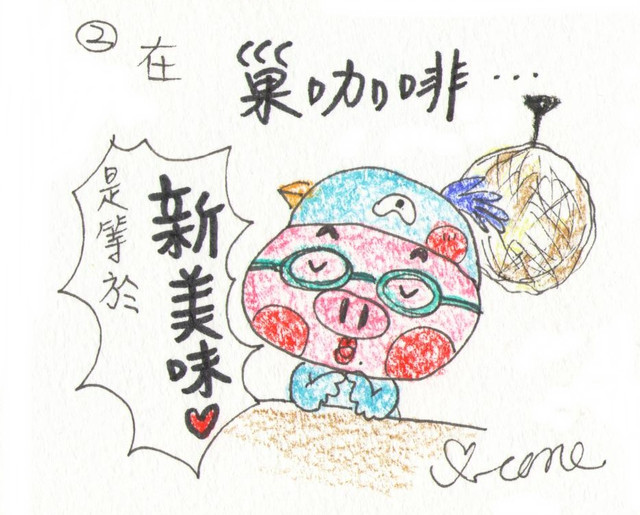 ②在
巢咖啡…
是等於
新美味